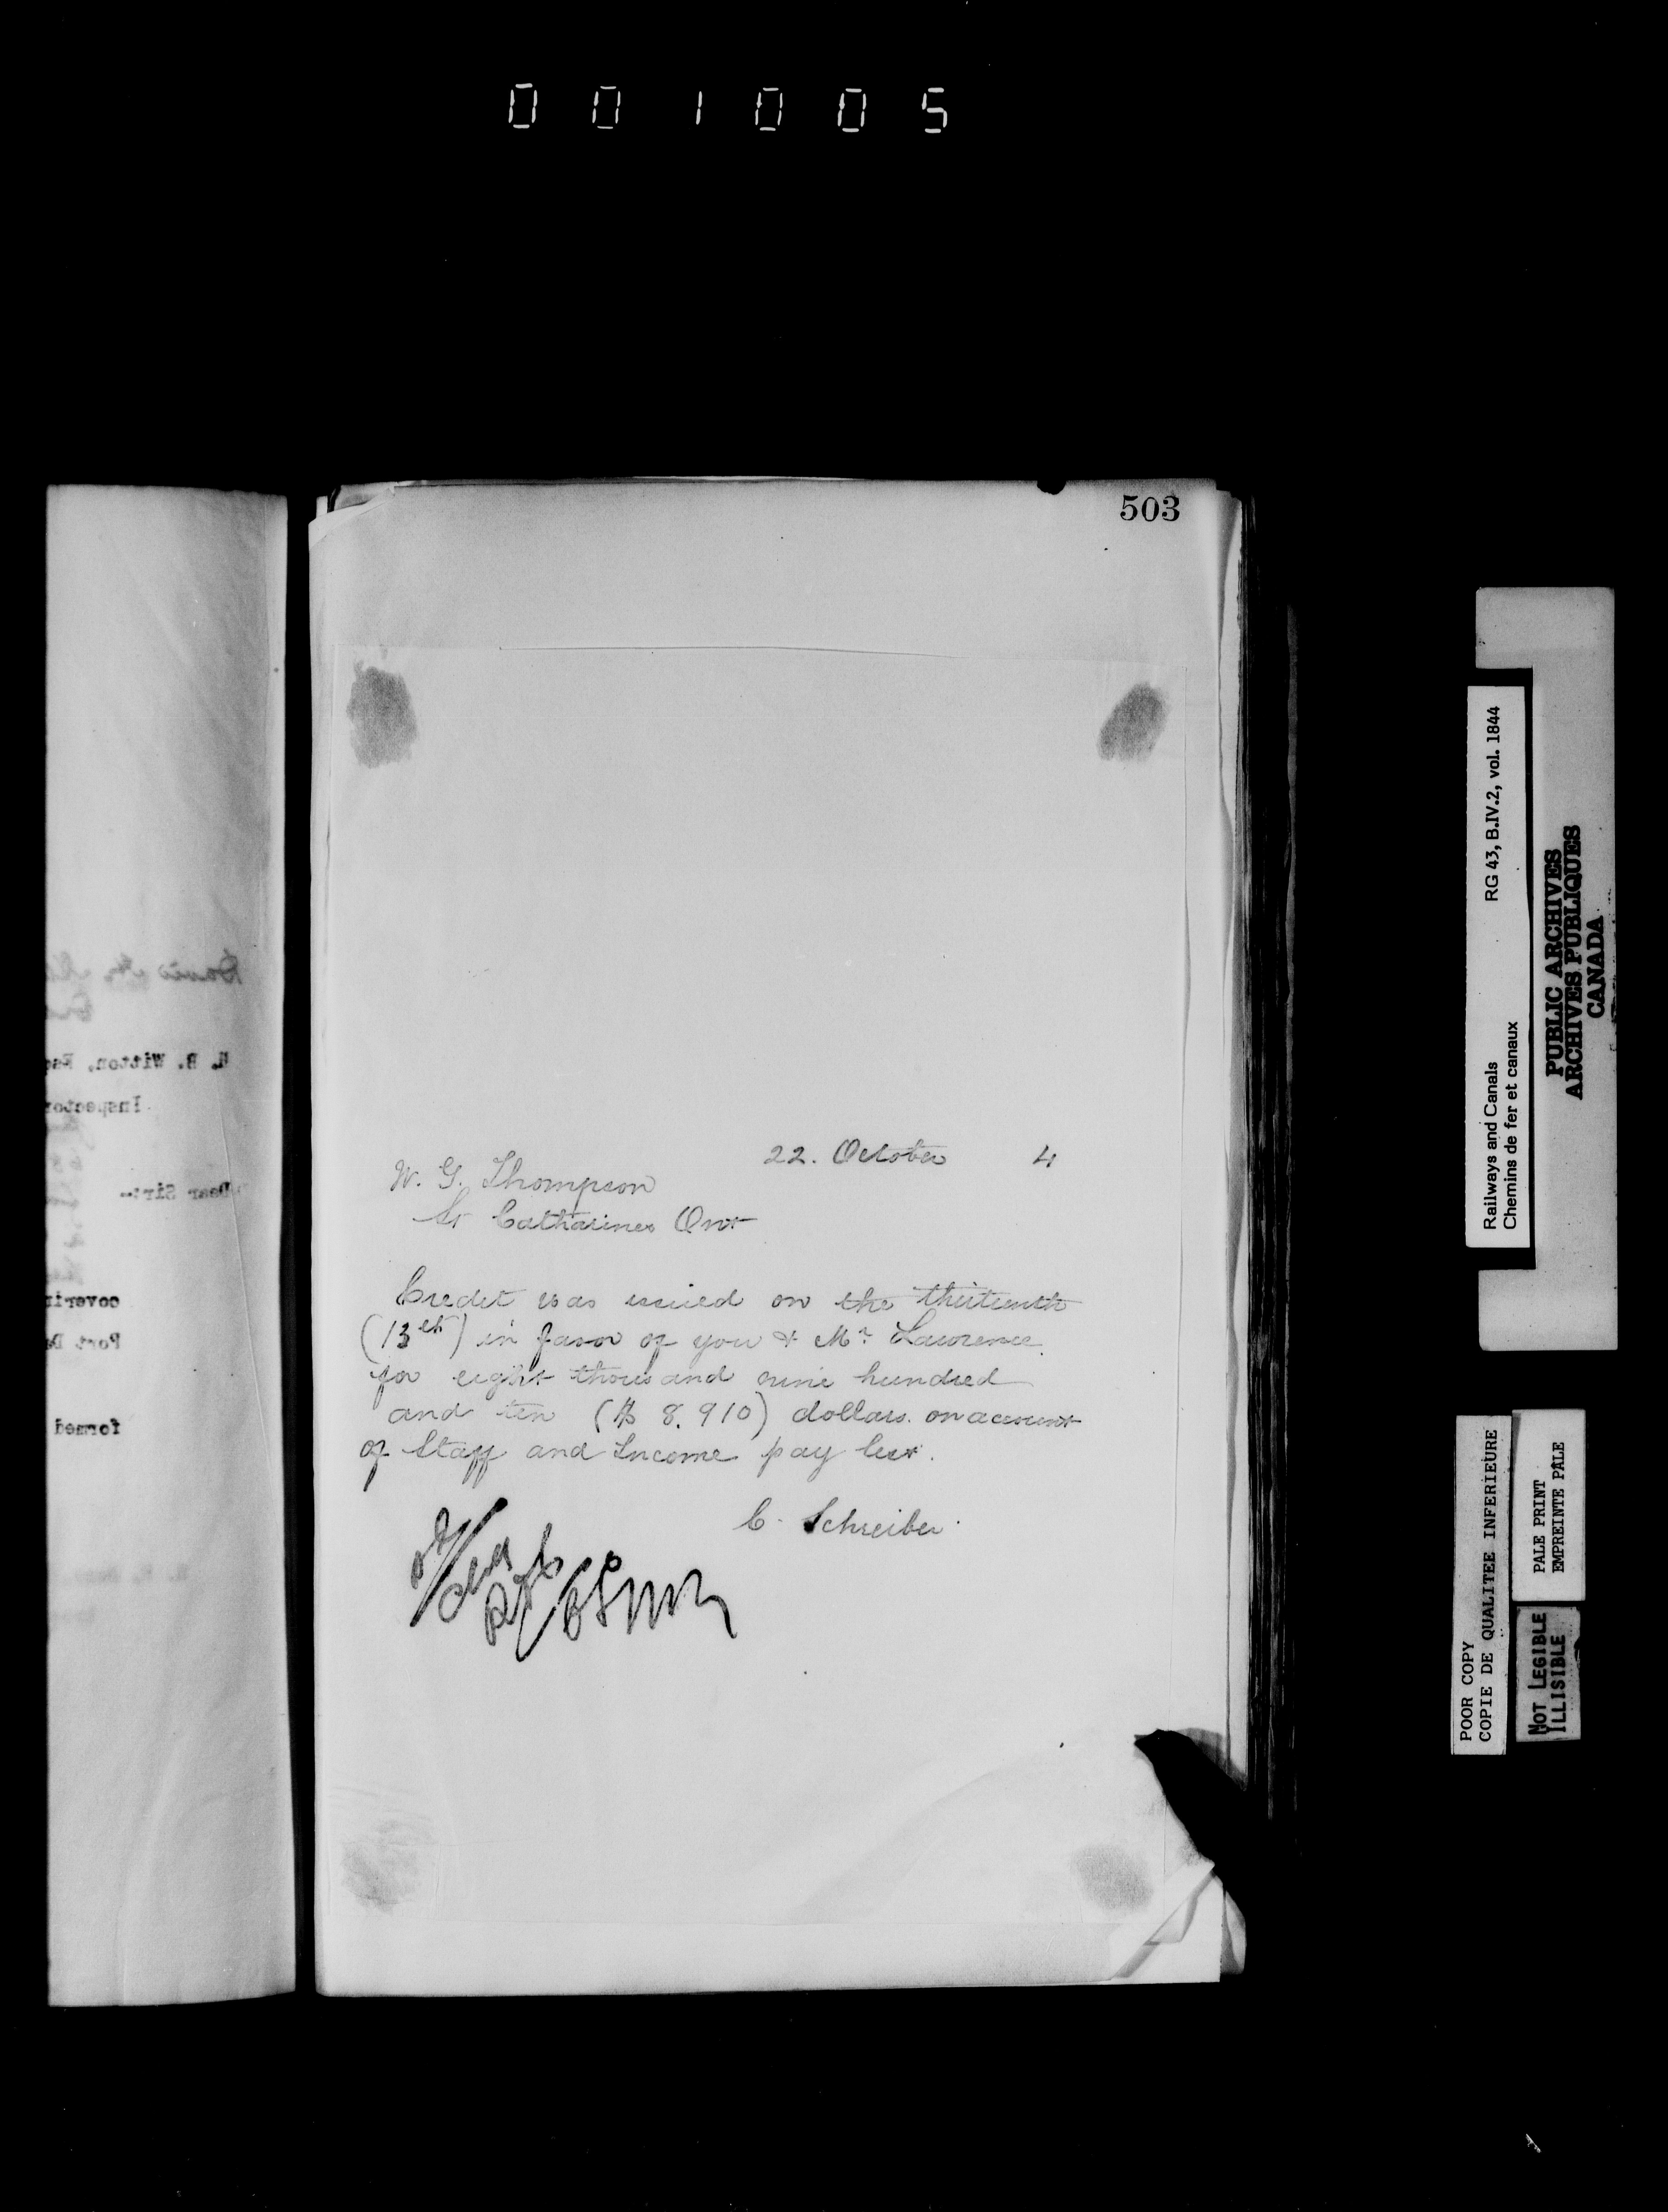 001005
503
22. October 4
W. G. Thompson
St Catharines Ont
Credit was issued on the thirteenth
(13th) in favor of you & Mr Lawrence
for eight thousand nine hundred
and ten ($ 8.910) dollars. on account
of Staff and Income pay list.
C. Schreiber.
H. B. Witton, Esq
Inspector
Dear Sir:-
coverin
Port Da
formed
Railways and Canals RG 43, B.IV.2, vol. 1844
Chemins de fer et canaux
PUBLIC ARCHIVES
ARCHIVES PUBLIQUES
CANADA
POOR COPY
COPIE DE QUALITEE INFERIEURE
PALE PRINT
EMPREINTE PÂLE
NOT LEGIBLE
ILLISIBLE